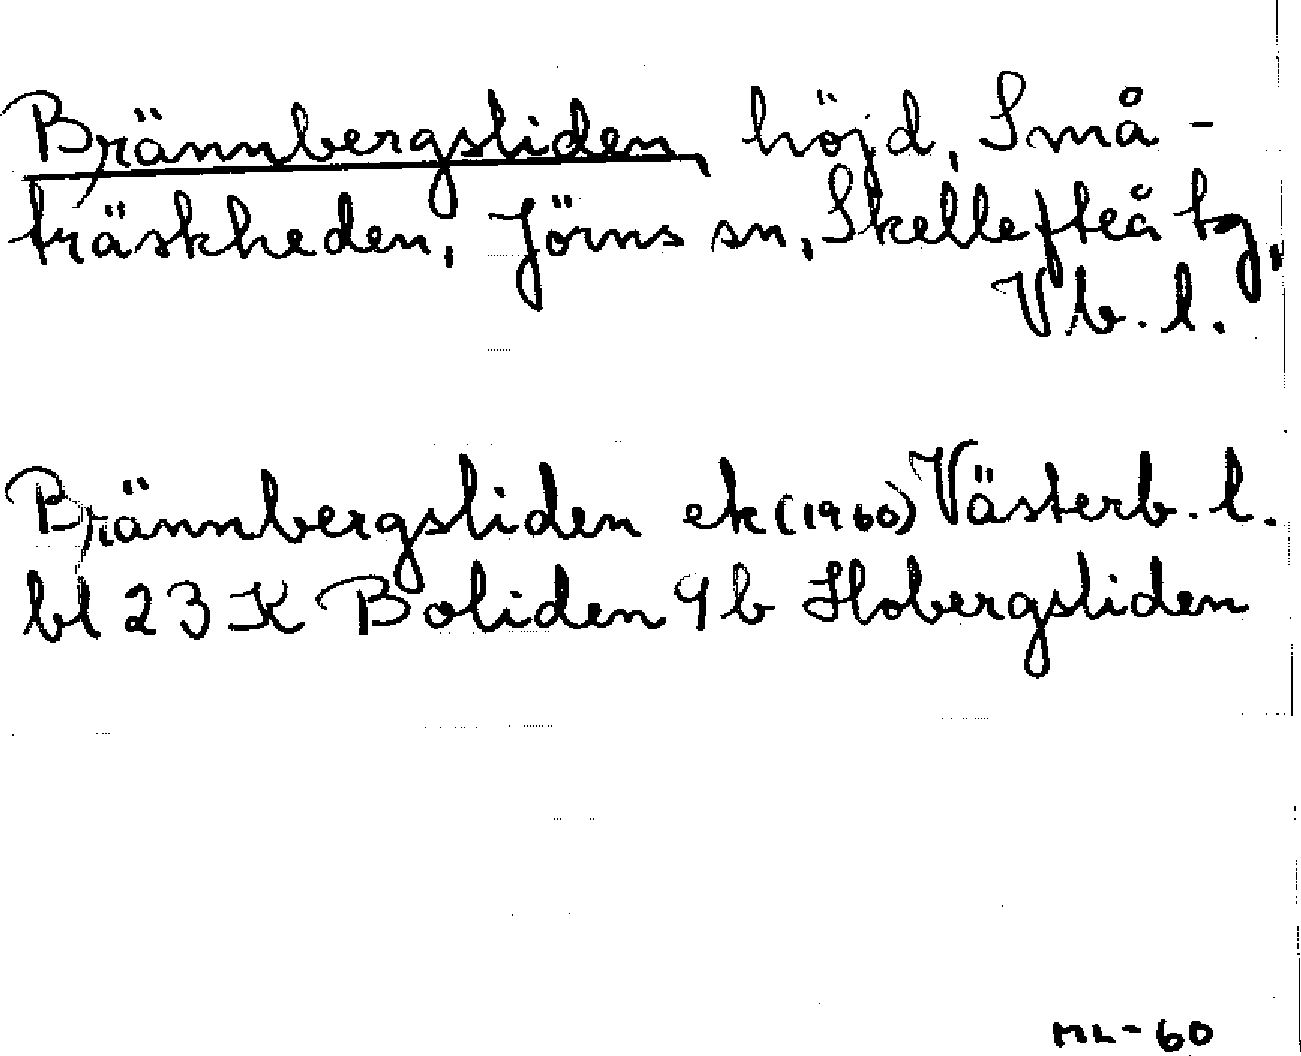 Brännbergsliden, höjd, Små-
träskheden, Jörns sn, Skellefteå tg,
Vb. l.
Brännbergsliden ek (1960) Västerb. l.
bl 23 K Boliden 9 b Hobergsliden
ML-60